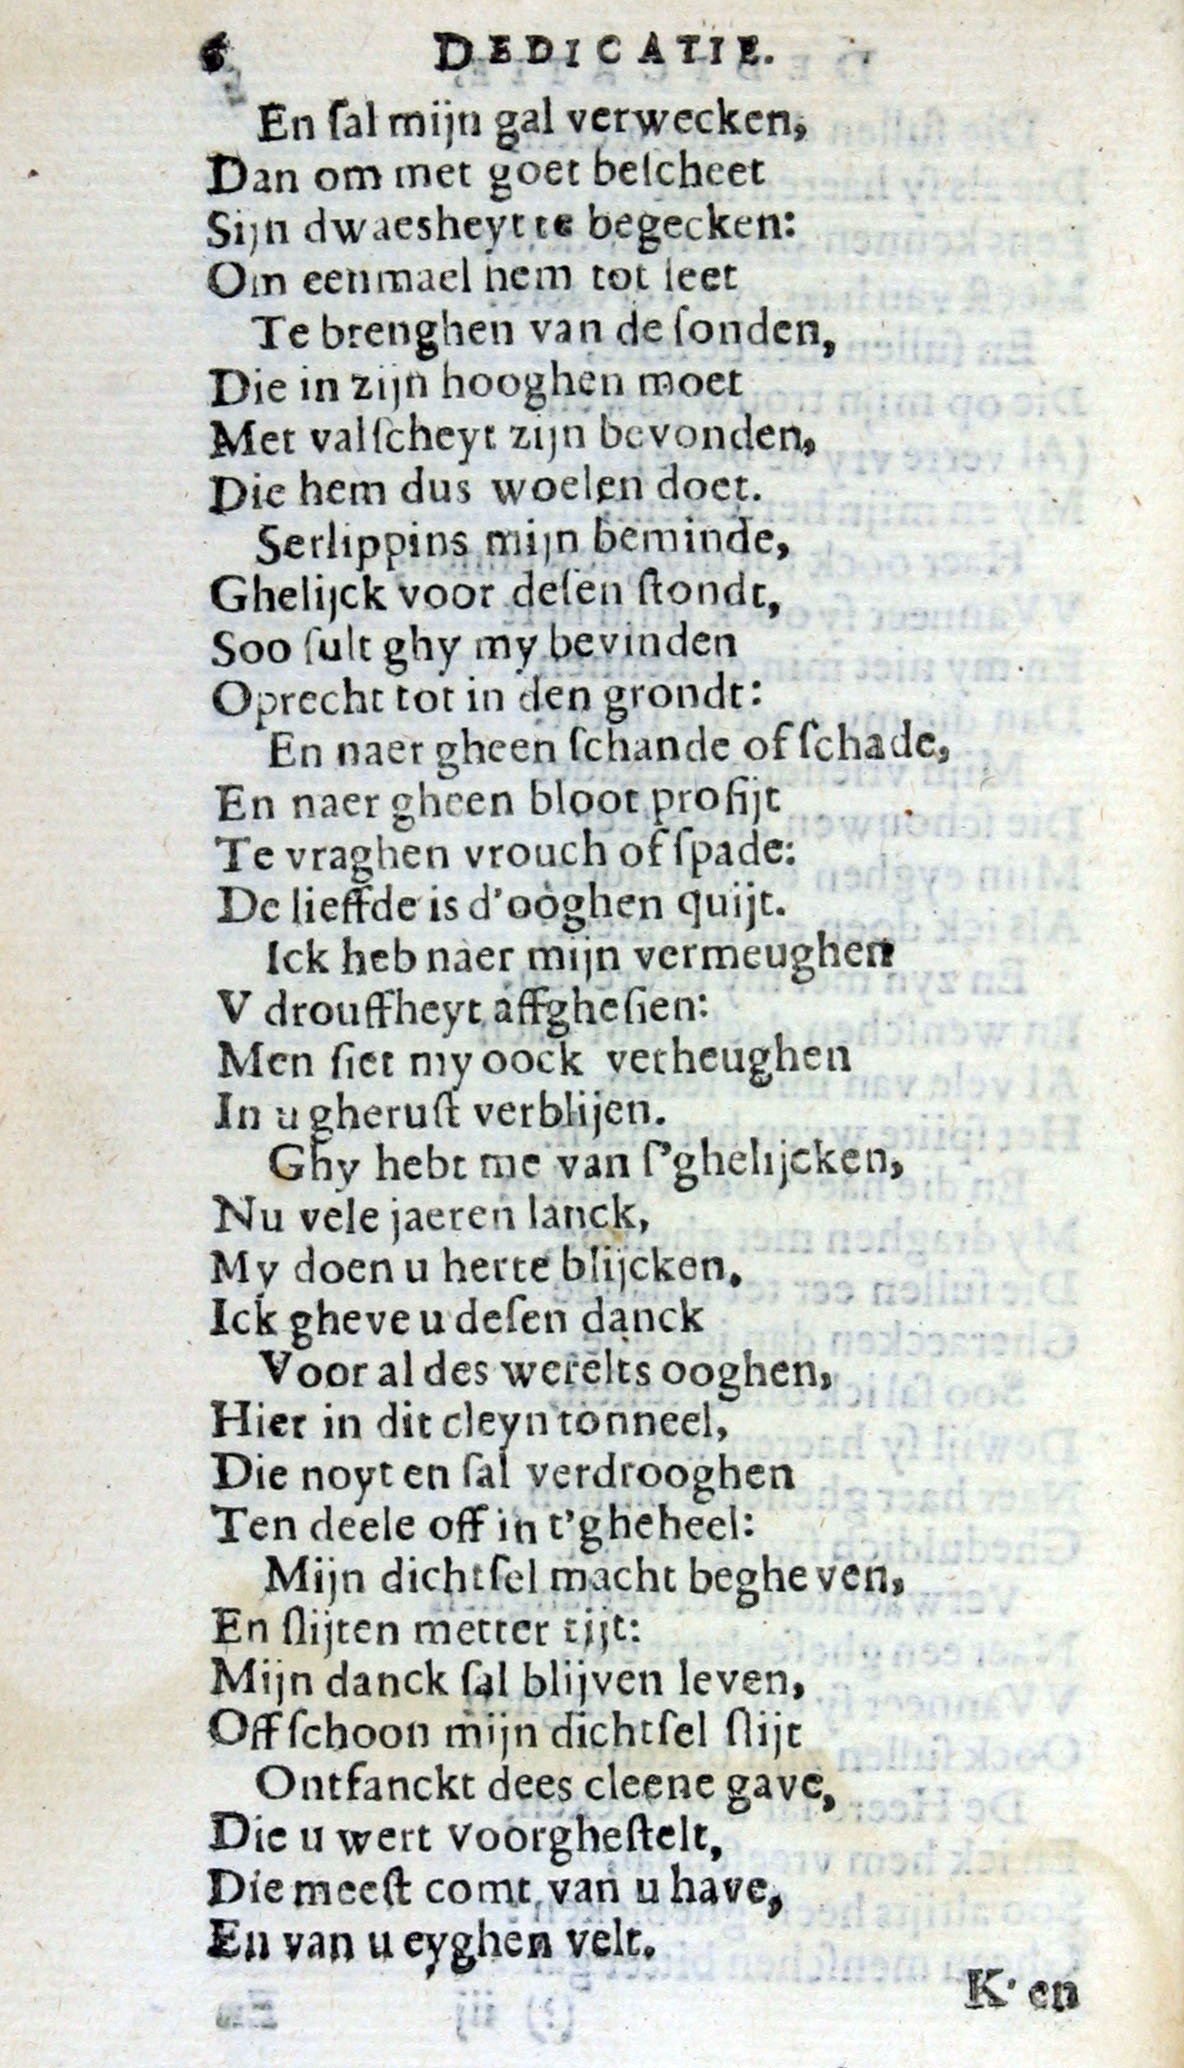 6 DEDICATIE.
En ſal mijn gal verwecken,
Dan om met goet beſcheet
Sijn dwaesheyt te begecken:
Om eenmael hem tot leet
Te brenghen van de ſonden,
Die in zijn hooghen moet
Met valſcheyt zijn bevonden,
Die hem dus woelen doet.
Serlippins mijn beminde,
Ghelijck voor deſen ſtondt,
Soo ſult ghy my bevinden
Oprecht tot in den grondt:
En naer gheen ſchande of ſchade,
En naer gheen bloot profijt
Te vraghen vrouch of ſpade:
De lieffde is d'ooghen quijt.
Ick heb naer mijn vermeughen
V drouffheyt affgheſien:
Men ſiet my oock verheughen
In u gheruſt verblijen.
Ghy hebt me van ſ'ghelijcken,
Nu vele jaeren lanck,
My doen u herte blijcken.
Ick gheve u deſen danck
Voor al des werelts ooghen,
Hier in dit cleyn tonneel,
Die noyt en ſal verdrooghen
Ten deele off in t'gheheel:
Mijn dichtſel macht begheven,
En ſlijten metter tijt:
Mijn danck ſal blijven leven,
Off ſchoon mijn dichtſel ſlijt
Ontfanckt dees cleene gave,
Die u wert voorgheſtelt,
Die meeſt comt van u have,
En van u eyghen velt.
K' en